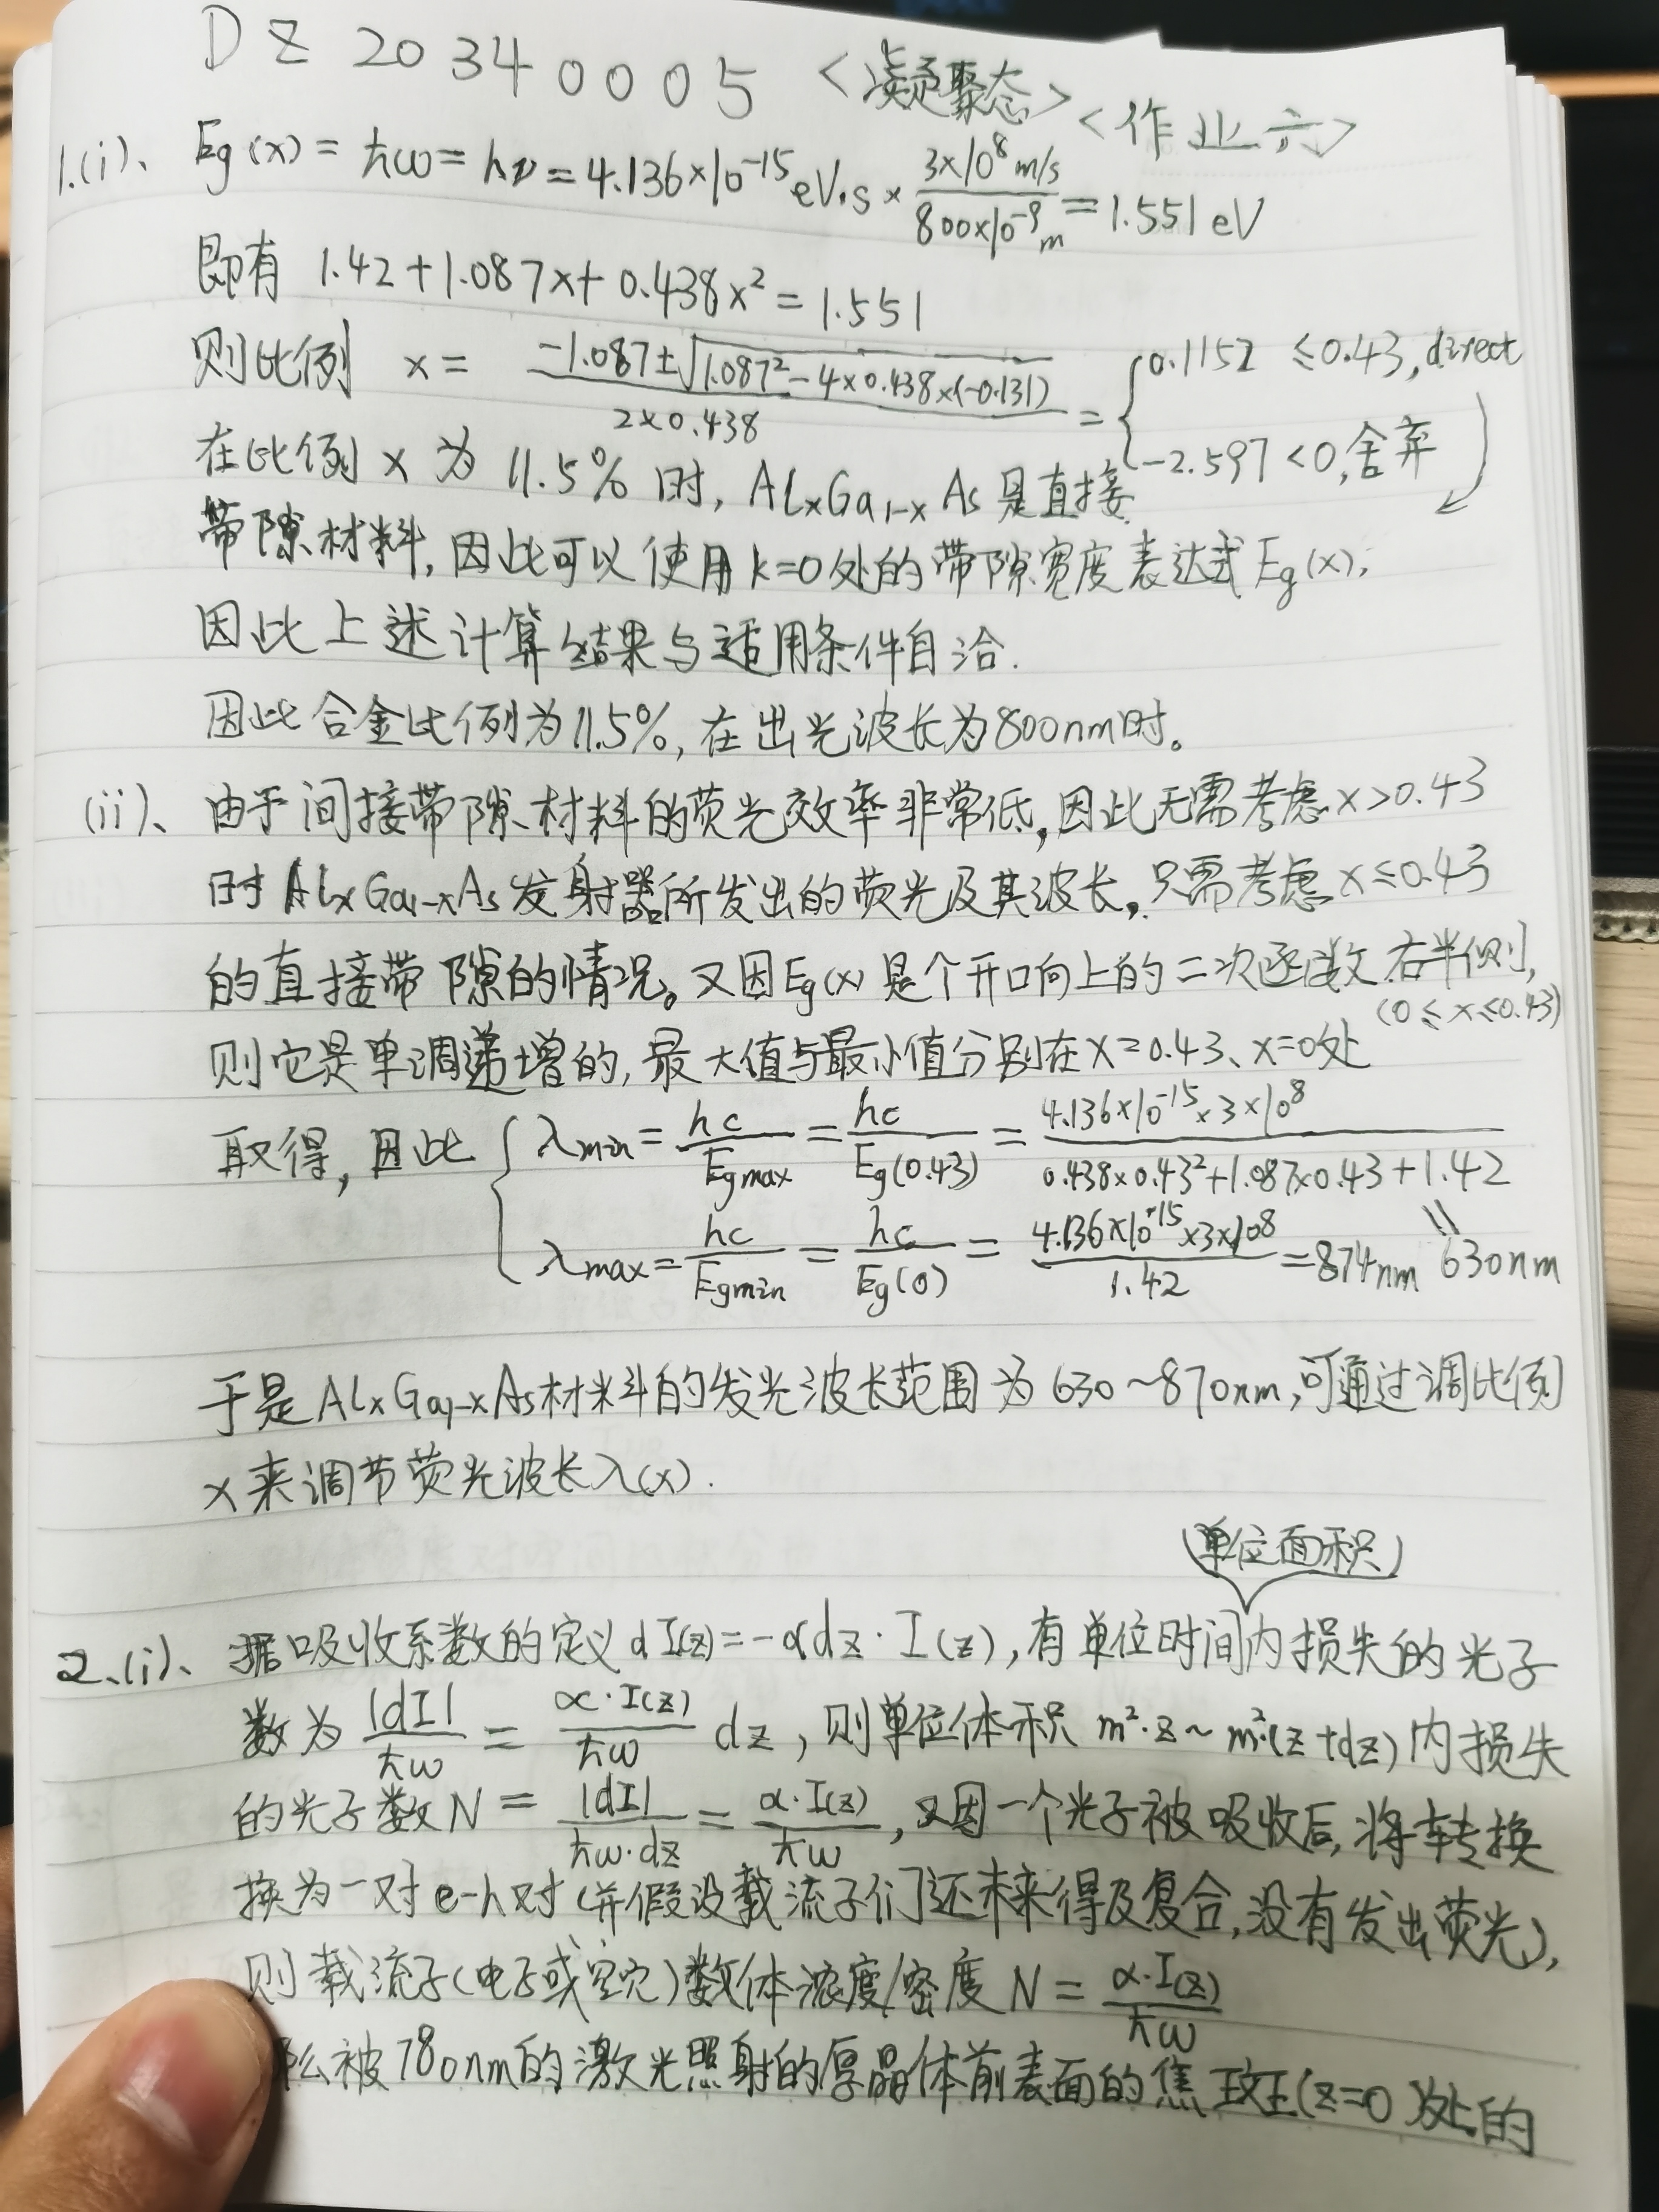 DZ20340005 <凝聚态> <作业六>
1.(i)、 Eg(x) = ħω = hν = 4.136×10⁻¹⁵ eV·s × (3×10⁸ m/s)/(800×10⁻⁹ m) = 1.551 eV
即有 1.42+1.087x+0.438x² = 1.551
则比例 x = (-1.087±√(1.087²-4×0.438×(-0.131)))/(2×0.438) = { 0.1152 ≤0.43, direct
-2.597<0, 舍弃
在此例 x 为 11.5% 时, AlxGa1-xAs 是直接
带隙材料, 因此可以使用 k=0处的带隙宽度表达式 Eg(x),
因此上述计算结果与适用条件自洽.
因此合金比例为11.5%, 在出光波长为800nm时。
(ii)、 由于间接带隙材料的荧光效率非常低, 因此无需考虑 x>0.43
时 AlxGa1-xAs 发射器所发出的荧光及其波长, 只需考虑 x≤0.43
的直接带隙的情况。又因Eg(x)是个开口向上的二次函数右半侧,
(0≤x≤0.43)
则它是单调递增的, 最大值与最小值分别在x=0.43、x=0处
取得, 因此 { λmin = hc/Egmax = hc/Eg(0.43) = (4.136×10⁻¹⁵×3×10⁸)/(0.438×0.43²+1.087×0.43+1.42) = 630nm
λmax = hc/Egmin = hc/Eg(0) = (4.136×10⁻¹⁵×3×10⁸)/1.42 = 874nm
于是 AlxGa1-xAs材料的发光波长范围为 630~870nm, 可通过调比例
x来调节荧光波长λ(x).
(单位面积)
2.(i)、 据吸收系数的定义 dI(z)=-αdz·I(z), 有单位时间内损失的光子
数为 |dI|/ħω = α·I(z)/ħω dz, 则单位体积 m²·z~m²·(z+dz) 内损失
的光子数N = |dI|/(ħω·dz) = α·I(z)/ħω, 又因一个光子被吸收后, 将转换
换为一对e-h对(并假设载流子们还未来得及复合, 没有发出荧光),
则载流子(电子或空穴)数体浓度/密度 N = α·I(z)/ħω
么被780nm的激光照射的厚晶体前表面的焦斑(z=0)处的